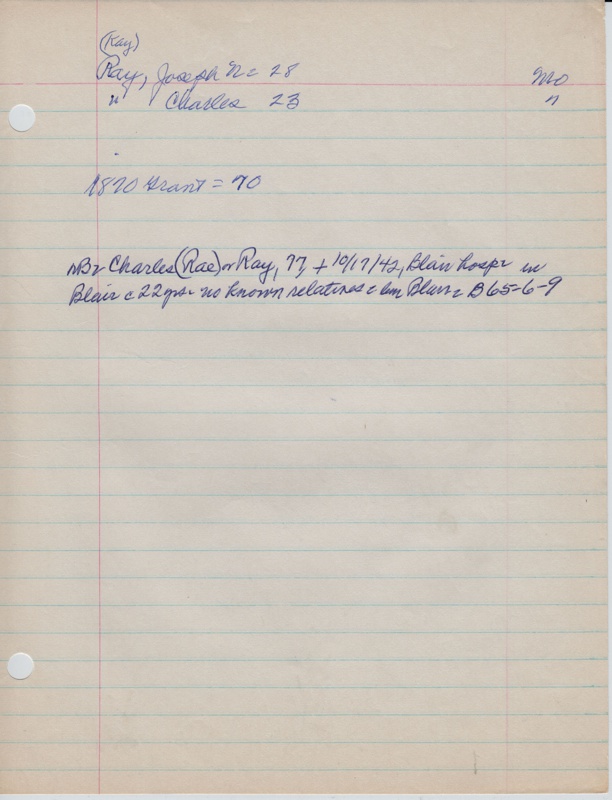 (Kay)
Ray, Joseph N = 28 Mo
" Charles 23 "
1870 Grant = 70
NB= Charles (Rae) or Ray, 77, + 10/17/42, Blair hosp= in
Blair c 22 yrs= no known relatives = bur Blair = B65-6-9